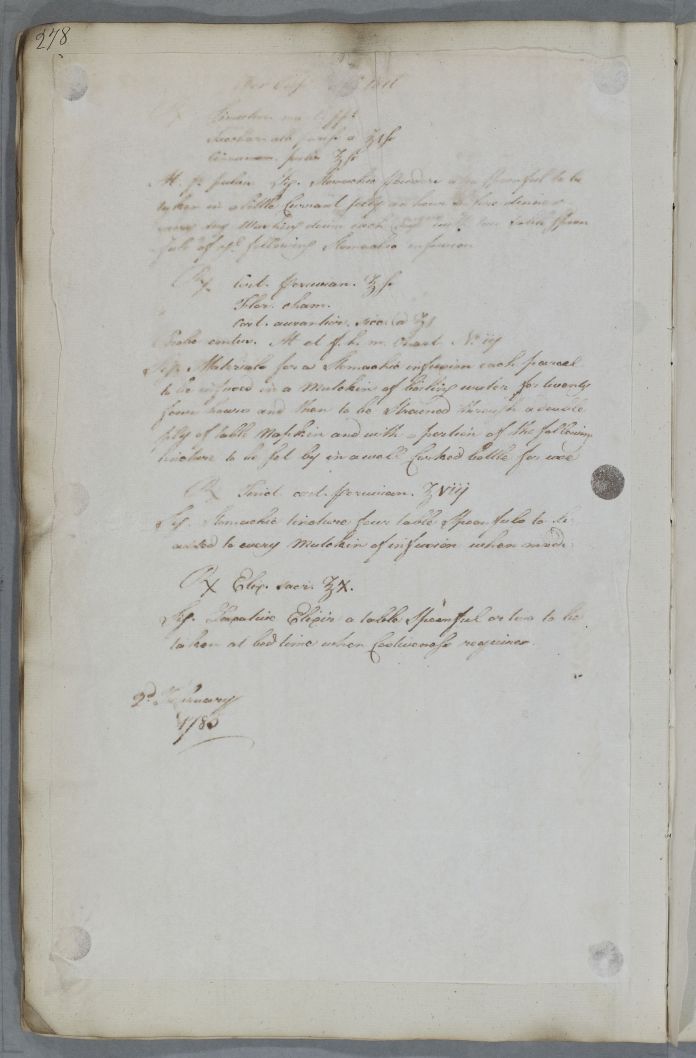 278
℞
ʒ i ſs
Cinnamon. pulv. ʒ ſs
M. f. pulv. Sig. Stomachic powders a tea spoonful to be
taken in a little Currant jelly an hour before dinner
table spoon
fuls of ye. following Stomachic infusion
℞ Cort. peruvian. ℥ ſs
Flor. cham.
Cort. aurantior. sicc. a ʒ i
contus. M et f. l. m. Chart. No. iij
Sig. Materials for a Stomachic infusion each parcel
to be infused in a Mutchkin of boiling water for twenty
four hours and then to be Strained through a double
ply of table Napkin and with a portion of the following
tincture to be set by in a well Corked bottle for use
℞ Tinct. cort. peruvian. ℥ viij
Sig. Stomachic tincture four table Spoonfuls to be
added to every Mutchkin of infusion when made.
℞ Elix. sacr. ℥ x.
Sig. Laxative Elixir a table Spoonful or two to be
taken at bed time when Costiveness requires.
2d. February
178